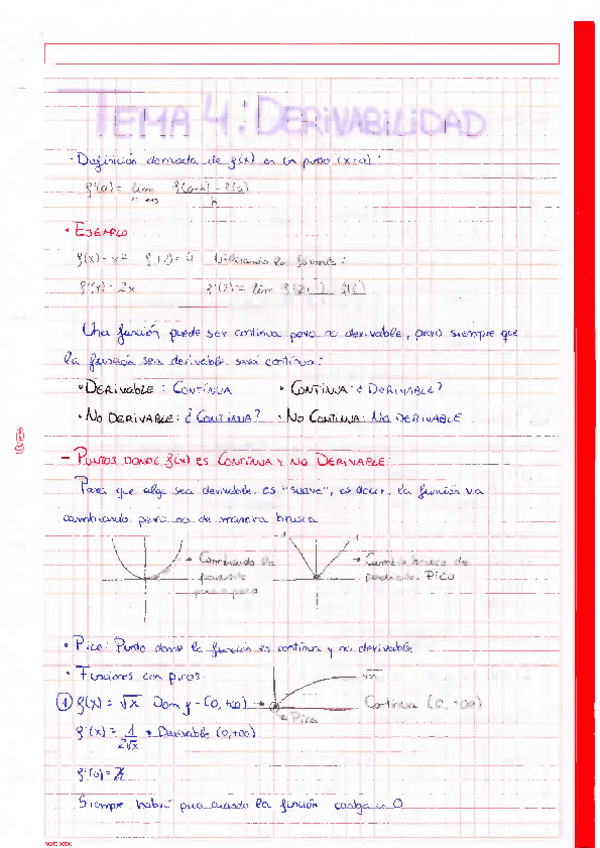 TEMA 4: DERIVABILIDAD
· Definición derivada de f(x) en un punto (x=a):
f'(a) = lim f(a+h) - f(a)
h
• EJEMPLO
f(x) = x² Utilizando la formula:
f'(x) = 2x f'(2) = lim
Una función puede ser continua pero no derivable, pero siempre que
la función sea derivable será continua:
• DERIVABLE: CONTINUA • CONTINUA: ¿DERIVABLE?
• NO DERIVABLE: ¿CONTINUA? • NO CONTINUA: NO DERIVABLE
- PUNTOS DONDE f(x) ES CONTINUA Y NO DERIVABLE:
Para que algo sea derivable es "suave", es decir, la función va
cambiando pero no de manera brusca
→ Cambiando la → Cambio brusco de
pendiente pendiente. PICO
poco a poco
• Pico: Punto donde la función es continua y no derivable
• Funciones con picos:
√x
① f(x) = √x Dom f = [0, +∞) Continua [0, +∞)
Pico
f'(x) = 1 → Derivable (0, +∞)
2√x
f'(0) = ∄
Siempre habrá pico cuando la función caiga en 0